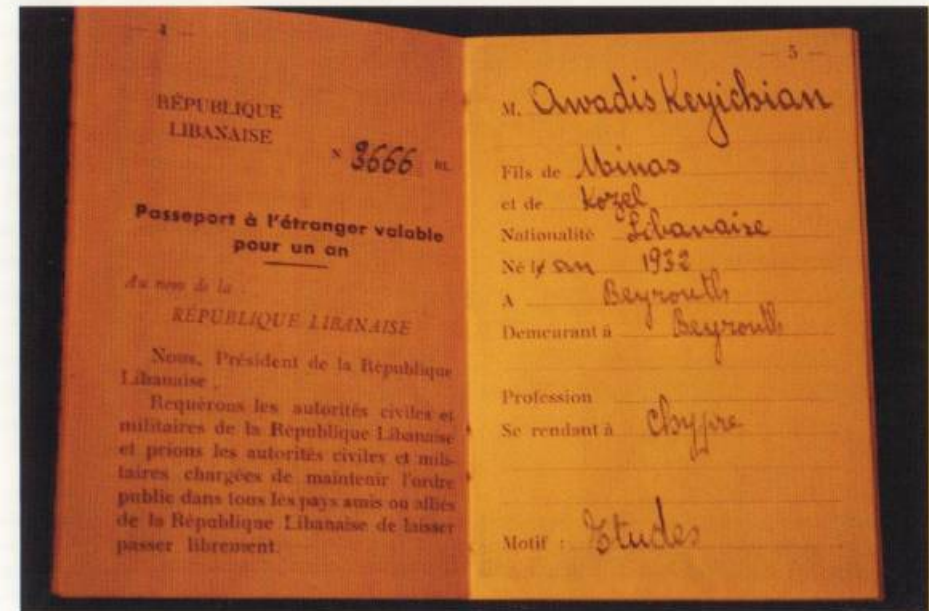 — 4 —
RÉPUBLIQUE
LIBANAISE
N 3666 BL.
Passeport à l'étranger valable
pour un an
Au nom de la
RÉPUBLIQUE LIBANAISE
Nous, Président de la République
Libanaise,
Requérons les autorités civiles et
militaires de la République Libanaise
et prions les autorités civiles et mili-
taires chargées de maintenir l'ordre
public dans tous les pays amis ou alliés
de la République Libanaise de laisser
passer librement.
— 5 —
M. Awadis Keyichian
Fils de Minas
et de Kozel
Nationalité Libanaise
Né en 1932
A Beyrouth
Demeurant à Beyrouth
Profession
Se rendant à Chypre
Motif : Etudes